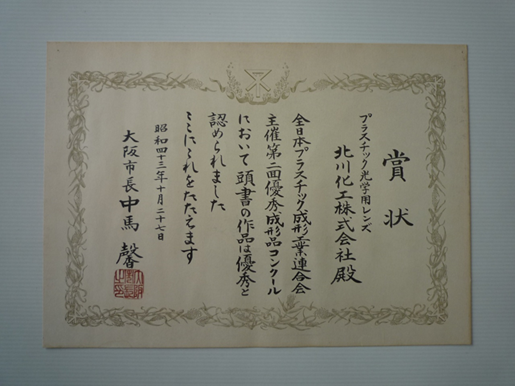 賞状
プラスチック光学用レンズ
北川化工株式会社殿
全日本プラスチック成形工業連合会
主催第二回優秀成形品コンクール
において頭書の作品は優秀と
認められました
ここにこれをたたえます
昭和四十三年十月二十七日
大阪市長 中馬 馨